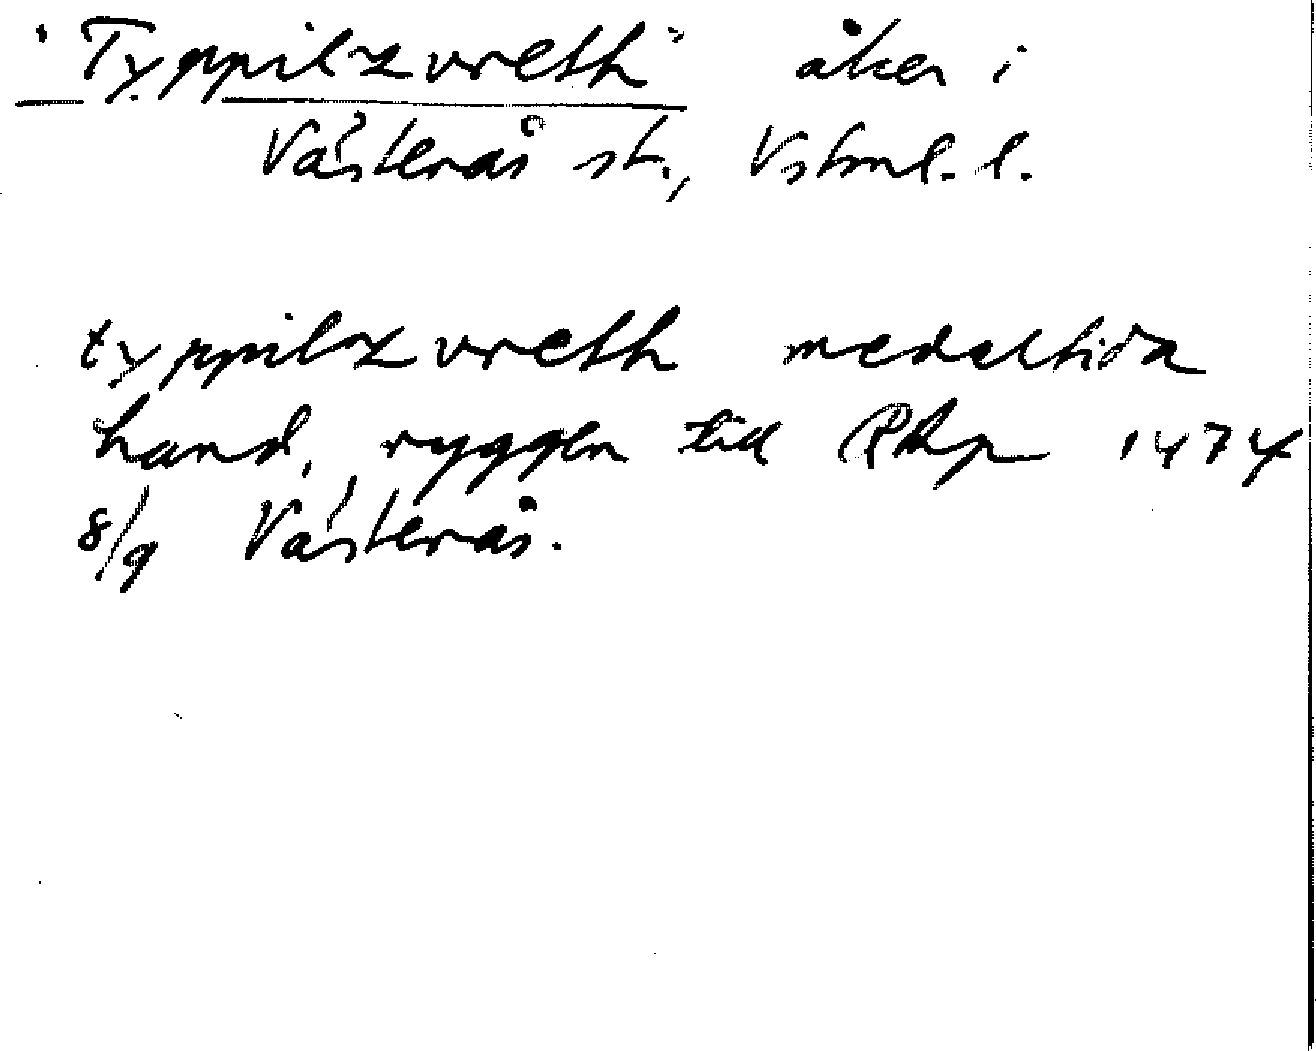 "Typpilz vreth" åker i
Västerås st., Vstml. l.
typpilz vreth medeltida
hand, ryggen till RAp 1474
8/9 Västerås.